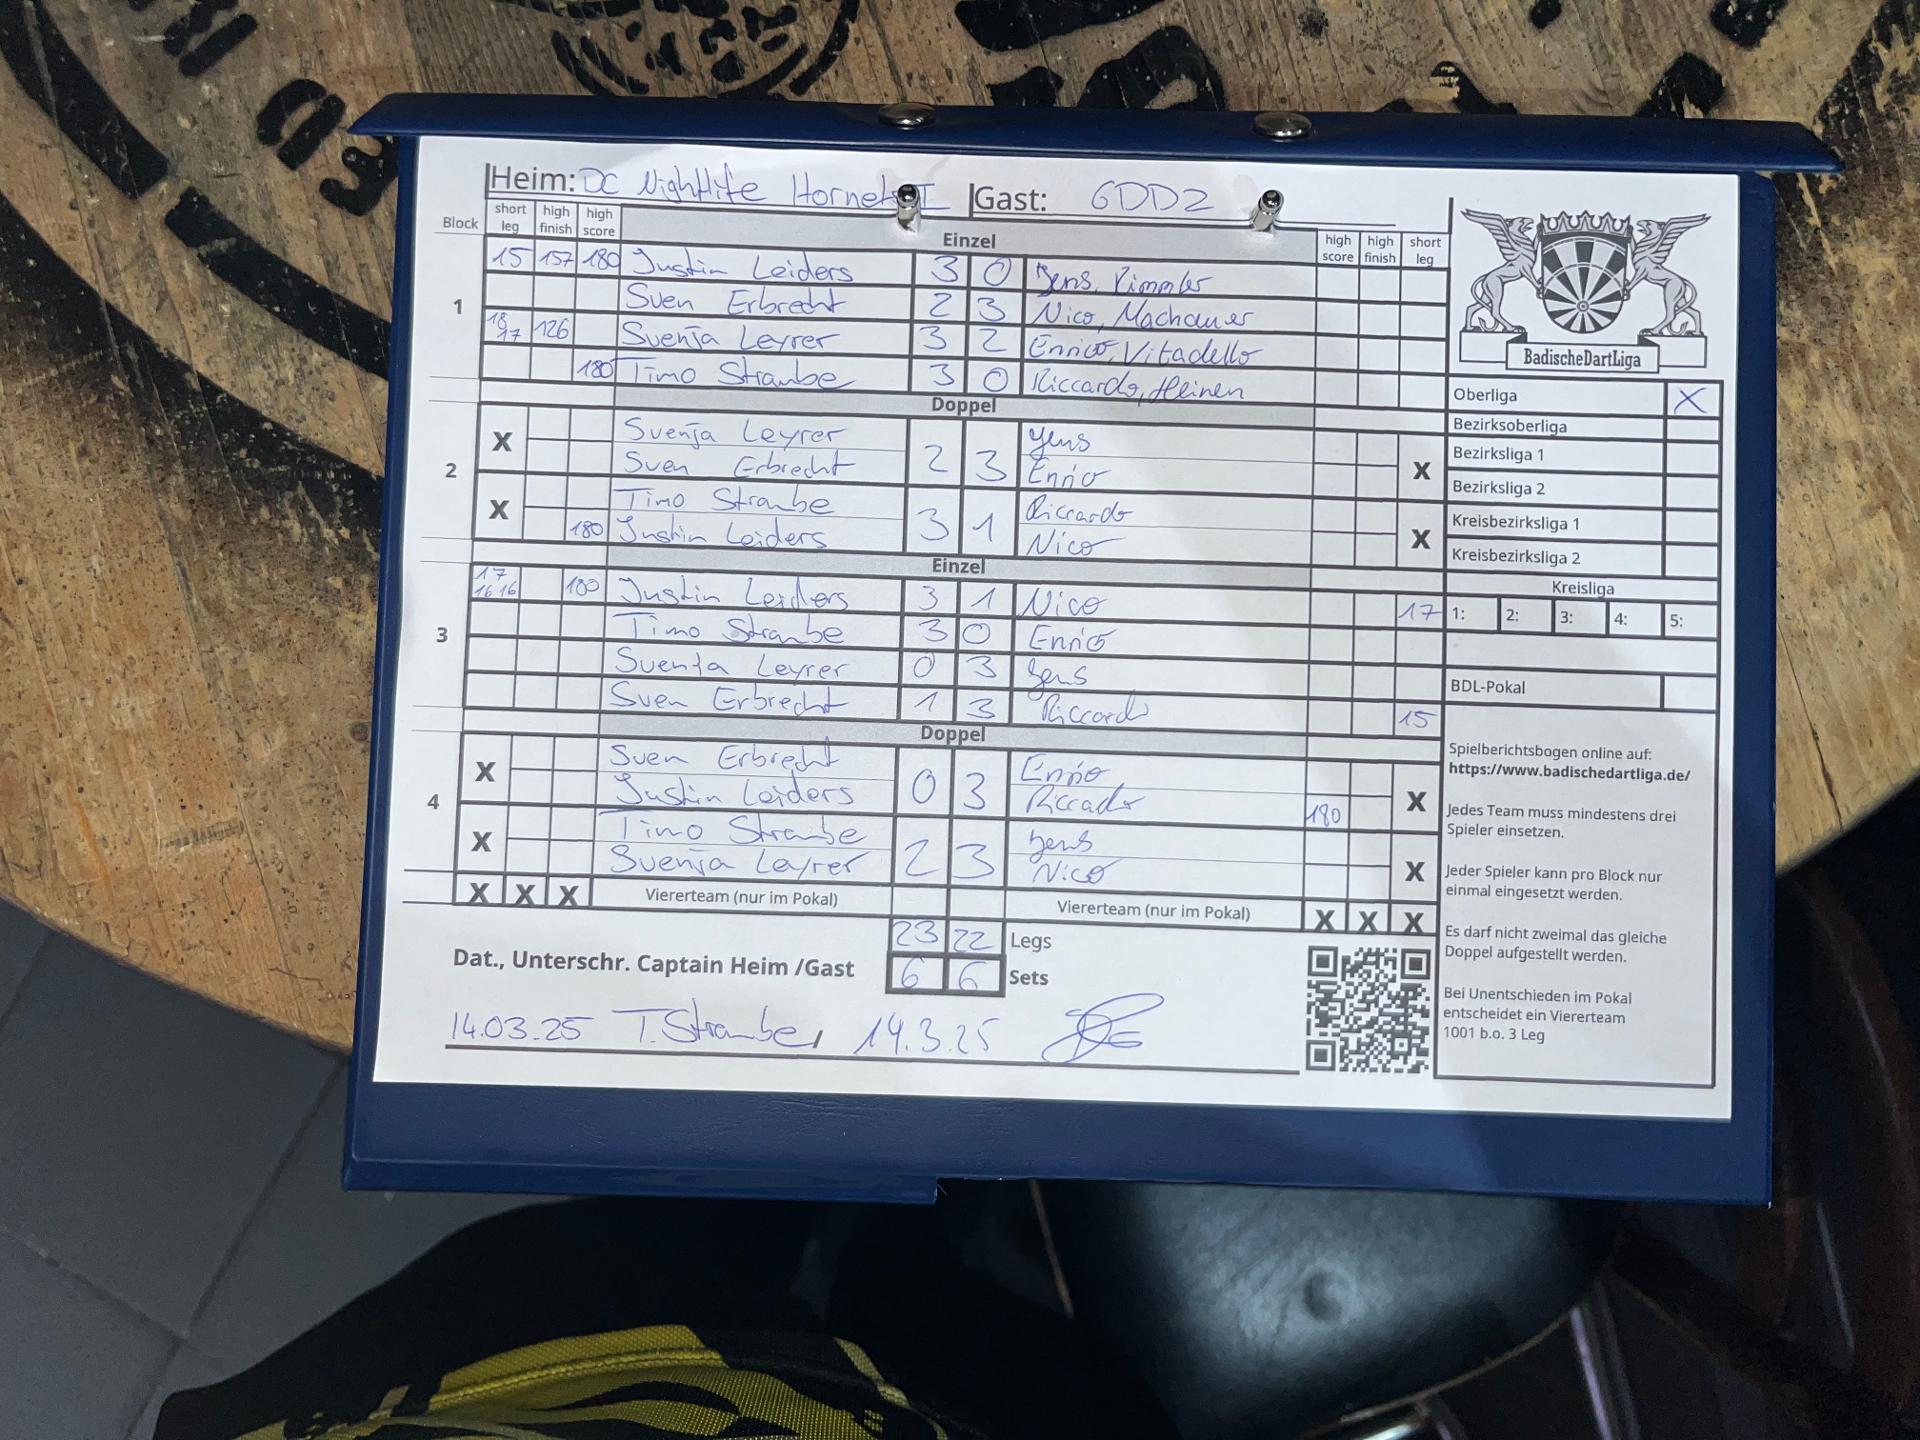 Heim: DC Nightlife Hornets I Gast: GDD2
Block short leg high finish high score Einzel high score high finish short leg
1
15 157 180 Justin Leiders 3 0 Jens, Rimmler
Sven Erbrecht 2 3 Nico, Machauer
18 17 126 Svenja Leyrer 3 2 Enrico, Vitadello
180 Timo Straube 3 0 Riccardo, Heinen
Doppel
2
X Svenja Leyrer 2 3 Jens X
Sven Erbrecht Enrico
X Timo Straube 3 1 Riccardo X
180 Justin Leiders Nico
Einzel
3
17 16 16 180 Justin Leiders 3 1 Nico 17
Timo Straube 3 0 Enrico
Svenja Leyrer 0 3 Jens
Sven Erbrecht 1 3 Riccardo 15
Doppel
4
X Sven Erbrecht 0 3 Enrico X
Justin Leiders Riccado 180
X Timo Straube 2 3 Jens X
Svenja Leyrer Nico
X X X Viererteam (nur im Pokal) Viererteam (nur im Pokal) X X X
23 22 Legs
Dat., Unterschr. Captain Heim /Gast 6 6 Sets
14.03.25 T. Straube, 14.3.25
BadischeDartLiga
Oberliga X
Bezirksoberliga
Bezirksliga 1
Bezirksliga 2
Kreisbezirksliga 1
Kreisbezirksliga 2
Kreisliga
1: 2: 3: 4: 5:
BDL-Pokal
Spielberichtsbogen online auf:
https://www.badischedartliga.de/
Jedes Team muss mindestens drei
Spieler einsetzen.
Jeder Spieler kann pro Block nur
einmal eingesetzt werden.
Es darf nicht zweimal das gleiche
Doppel aufgestellt werden.
Bei Unentschieden im Pokal
entscheidet ein Viererteam
1001 b.o. 3 Leg